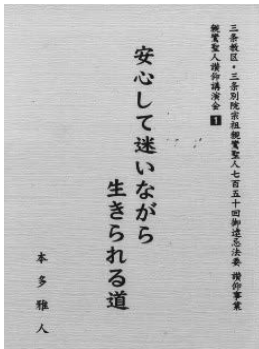 三条教区・三条別院宗祖親鸞聖人七百五十回御遠忌法要 讃仰事業
親鸞聖人讃仰講演会 1
安心して迷いながら
生きられる道
本多雅人